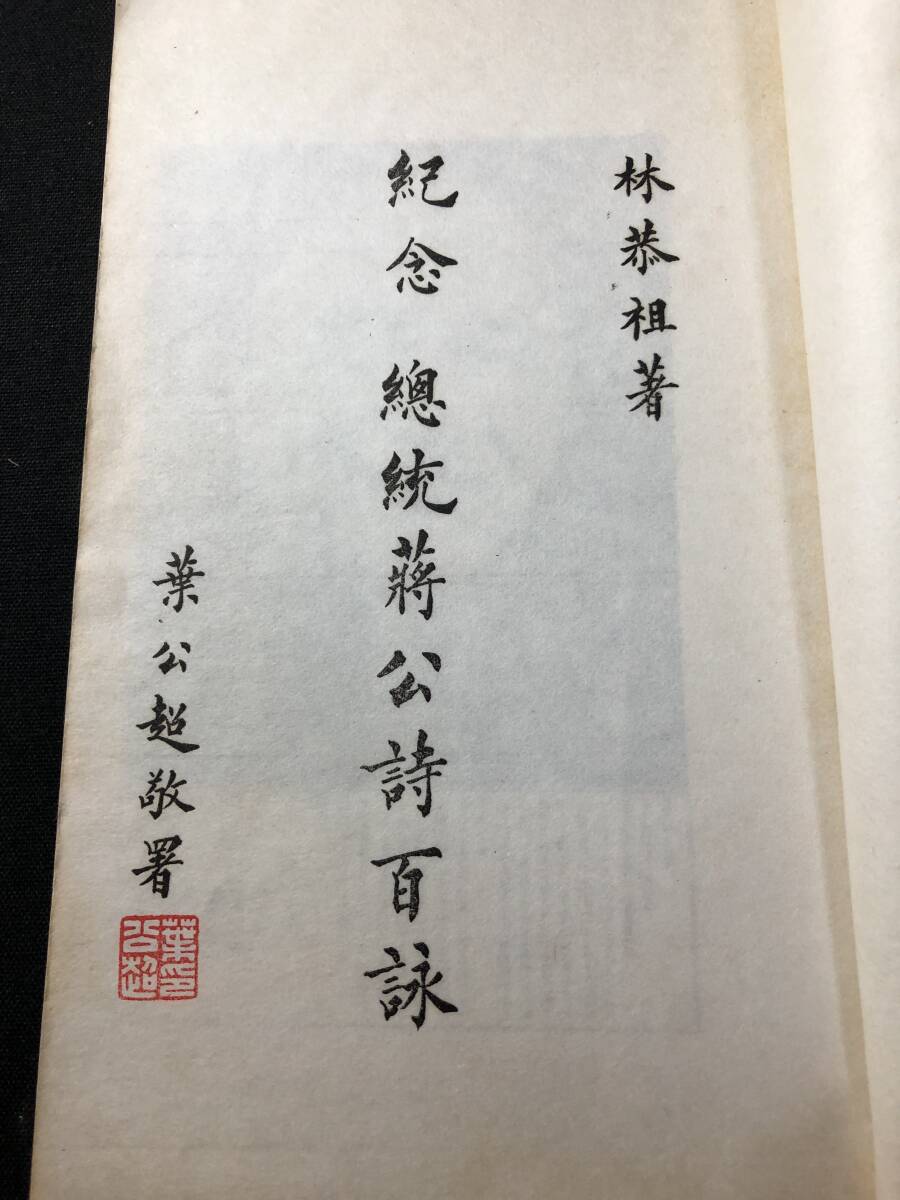 林恭祖著
紀念 總統蔣公詩百詠
葉公超敬署
葉公超印